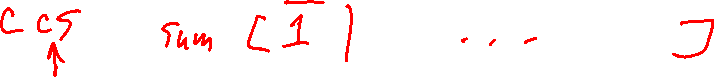 CCS sum [ 1̅ | ... ]